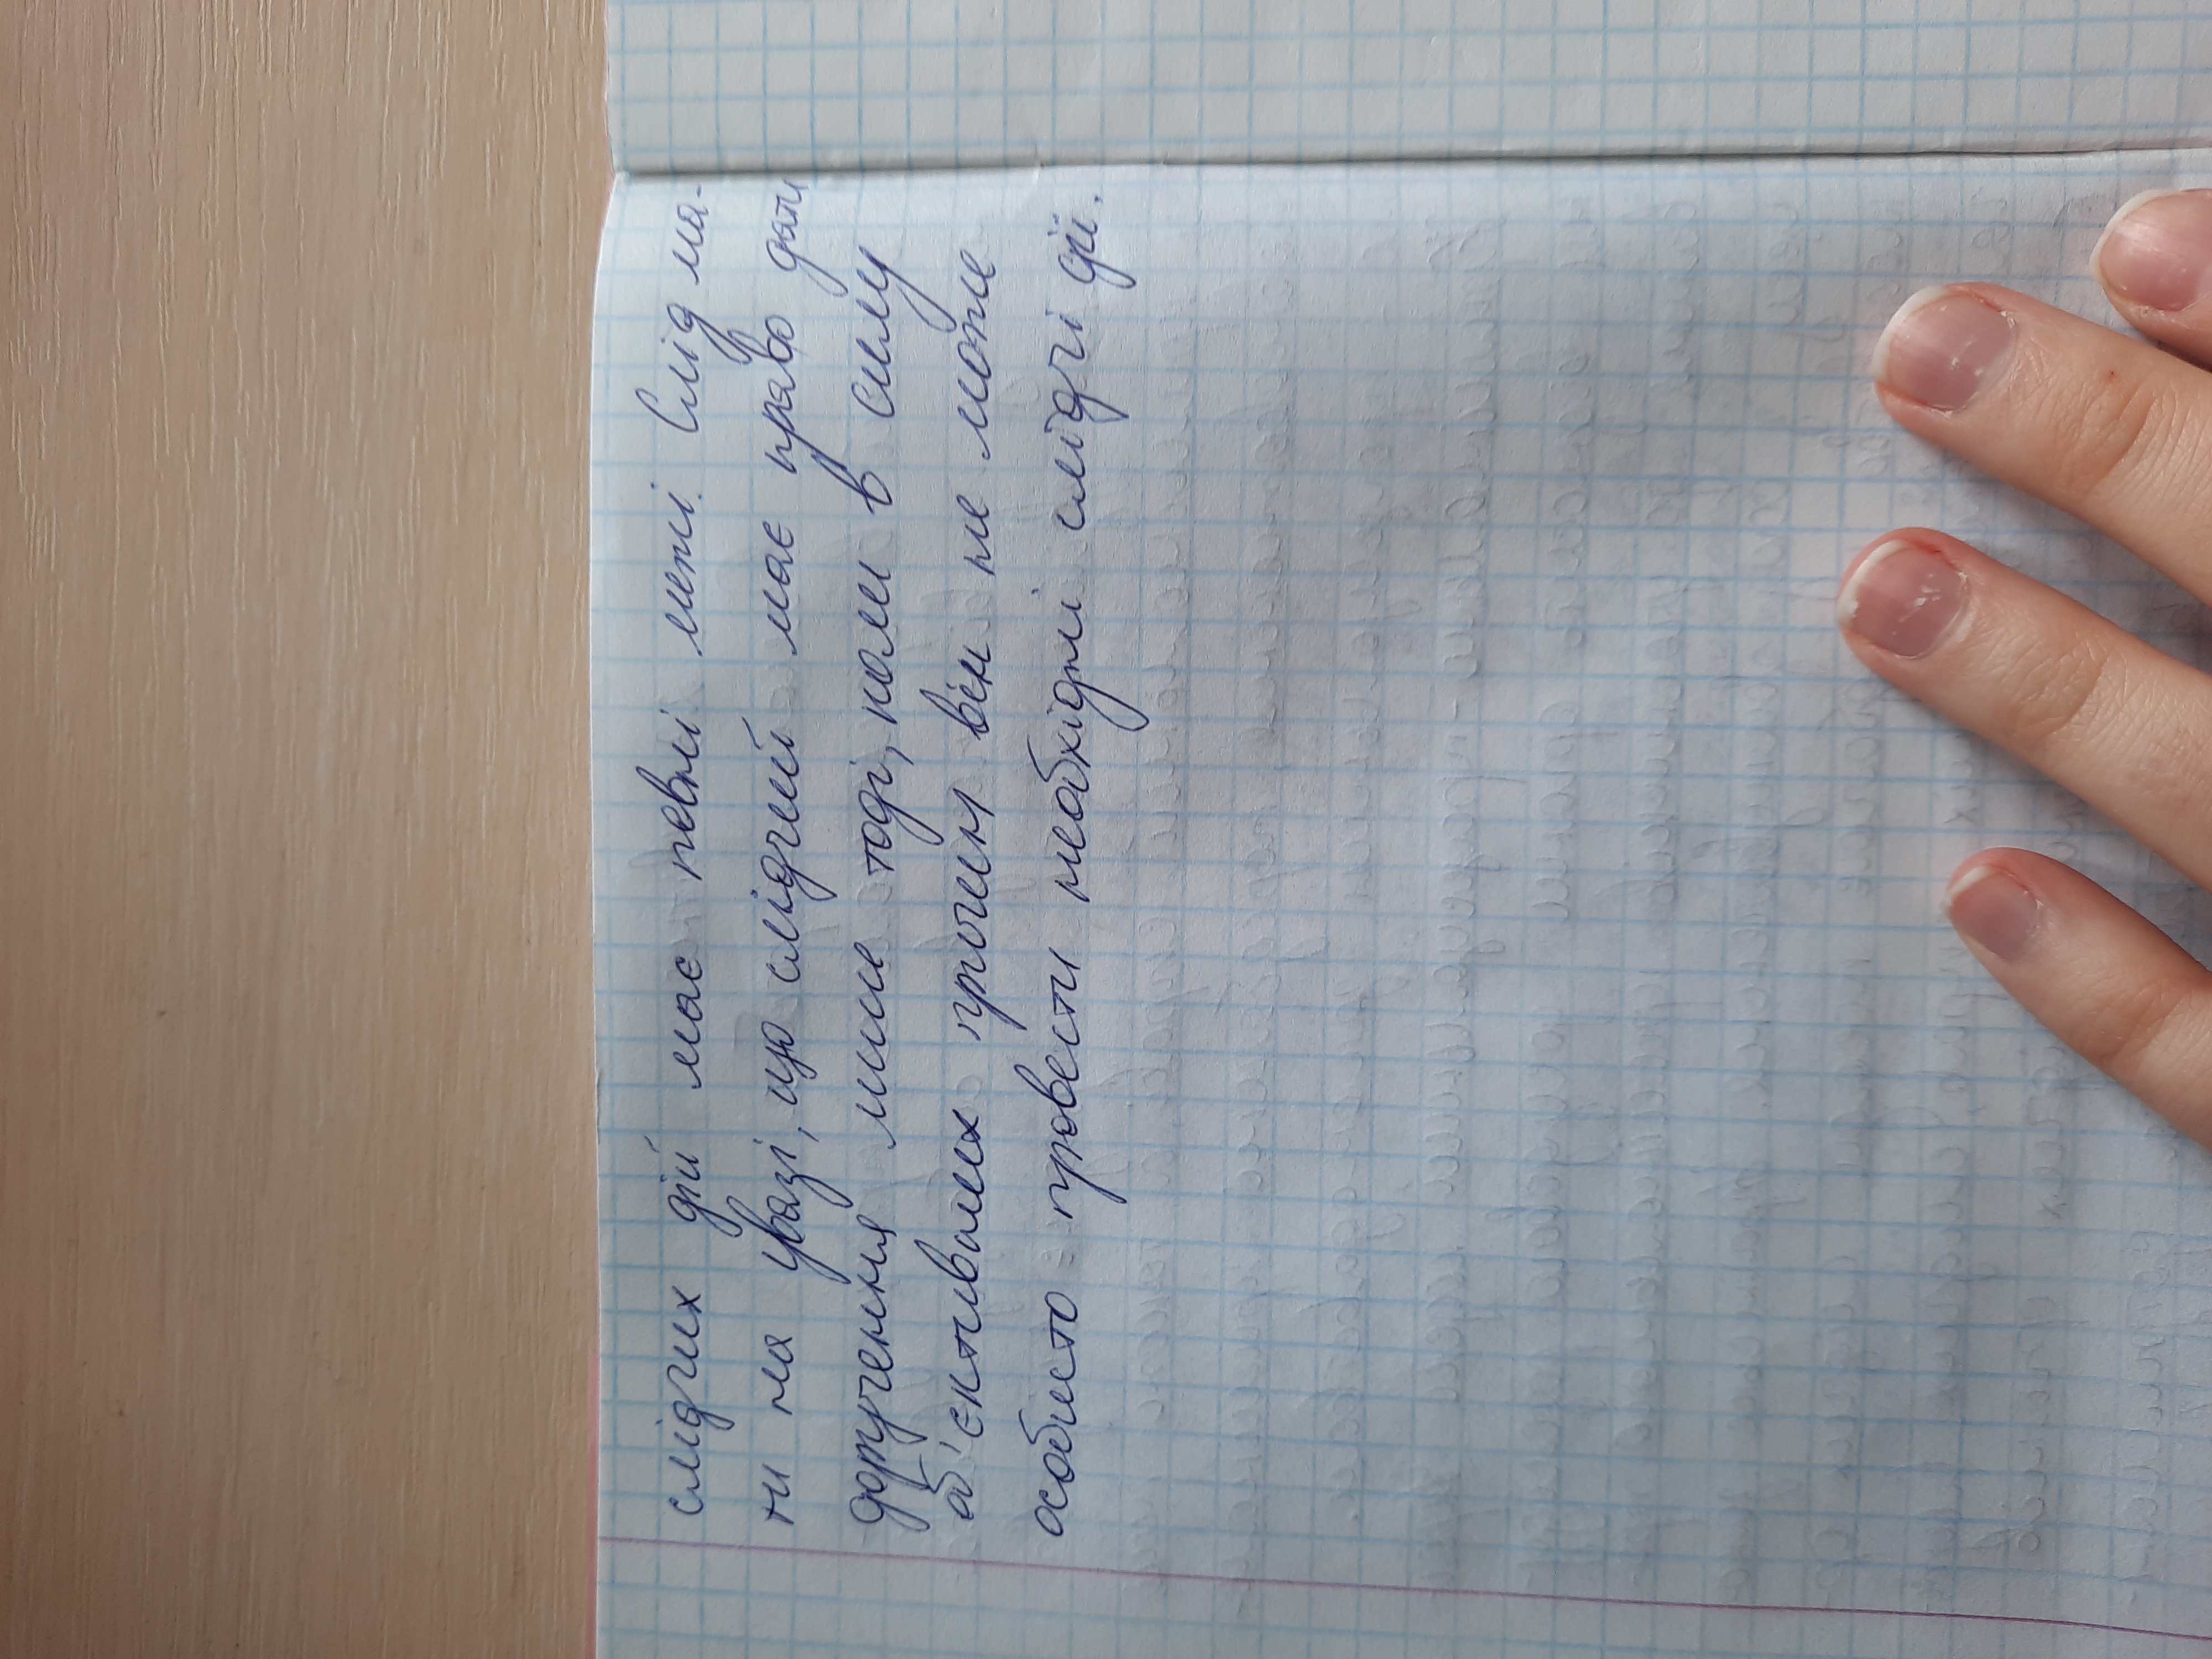 слідчих дій має певні межі. Слід ма-
ти на увазі, що слідчий має право дати
доручення лише тоді, коли в силу
об'єктивних причин він не може
особисто провести необхідні слідчі дії.